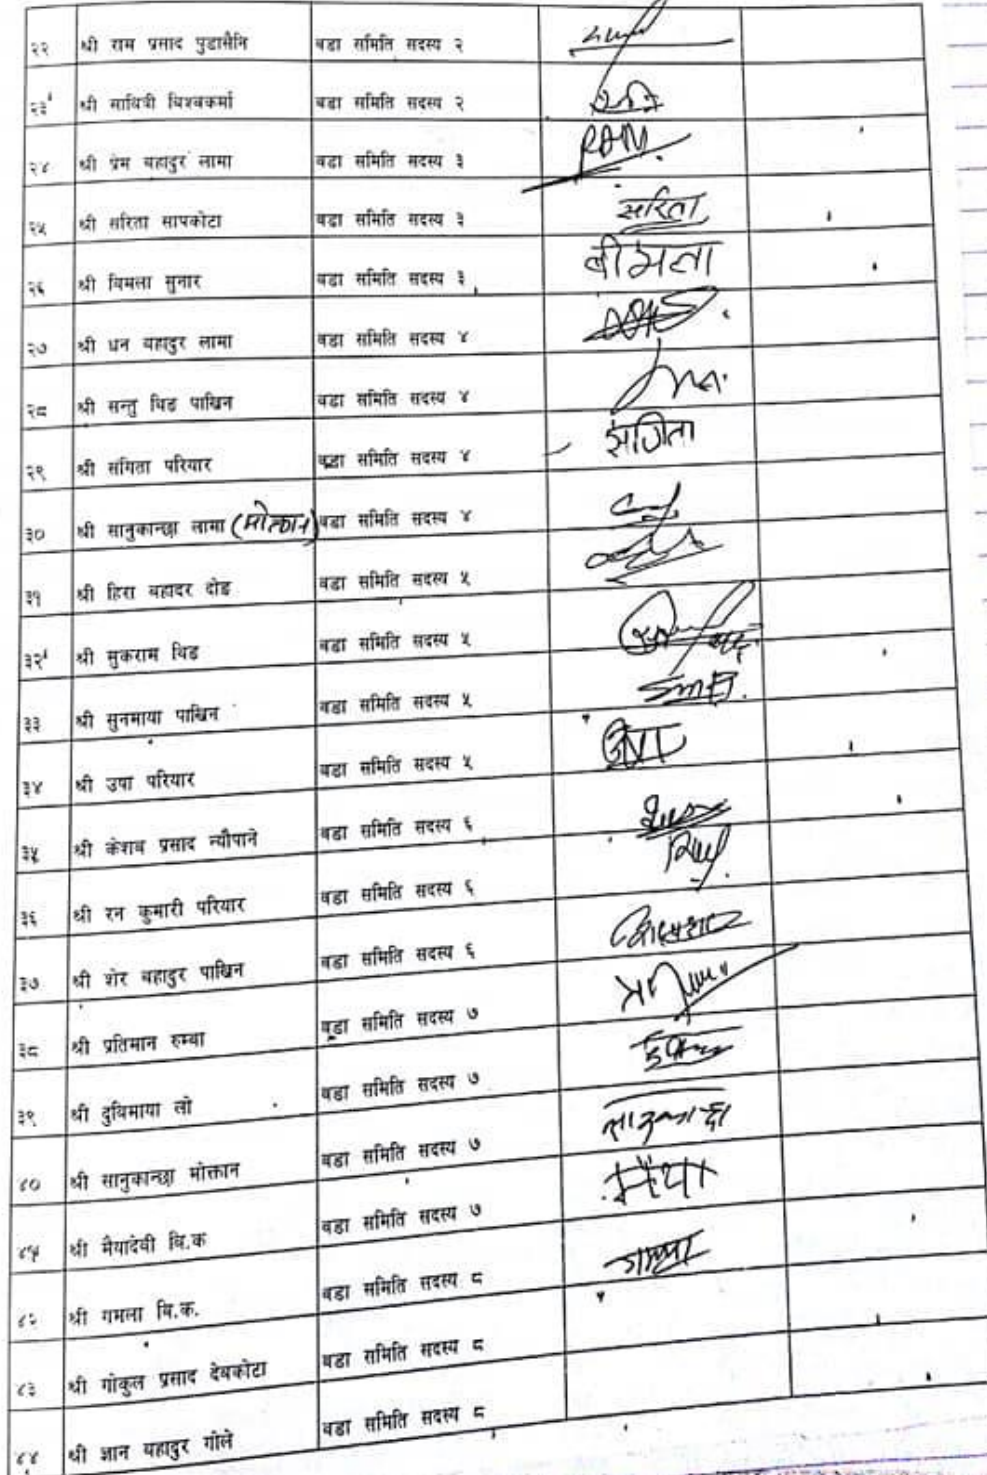 २२ श्री राम प्रसाद पुडासैनि वडा समिति सदस्य २
२३ श्री सावित्री विश्वकर्मा वडा समिति सदस्य २
२४ श्री प्रेम बहादुर लामा वडा समिति सदस्य ३
२५ श्री सरिता सापकोटा वडा समिति सदस्य ३ सरिता
२६ श्री विमला सुनार वडा समिति सदस्य ३ वीमला
२७ श्री धन बहादुर लामा वडा समिति सदस्य ४
२८ श्री सन्तु थिङ पाख्रिन वडा समिति सदस्य ४
२९ श्री संगिता परियार वडा समिति सदस्य ४ संगिता
३० श्री सानुकान्छा लामा (मोक्तान) वडा समिति सदस्य ४
३१ श्री हिरा बहादर दोङ वडा समिति सदस्य ५
३२ श्री सुकराम थिङ वडा समिति सदस्य ५
३३ श्री सुनमाया पाख्रिन वडा समिति सदस्य ५
३४ श्री उषा परियार वडा समिति सदस्य ५
३५ श्री केशब प्रसाद न्यौपाने वडा समिति सदस्य ६
३६ श्री रन कुमारी परियार वडा समिति सदस्य ६
३७ श्री शेर बहादुर पाख्रिन वडा समिति सदस्य ६
३८ श्री प्रतिमान रुम्बा वडा समिति सदस्य ७
३९ श्री दुविमाया लो वडा समिति सदस्य ७
४० श्री सानुकान्छा मोक्तान वडा समिति सदस्य ७ सानुकान्छा
४१ श्री मैयादेवी वि.क वडा समिति सदस्य ७ मैया
४२ श्री गमला वि.क. वडा समिति सदस्य ८
४३ श्री गोकुल प्रसाद देवकोटा वडा समिति सदस्य ८
४४ श्री ज्ञान बहादुर गोले वडा समिति सदस्य ८